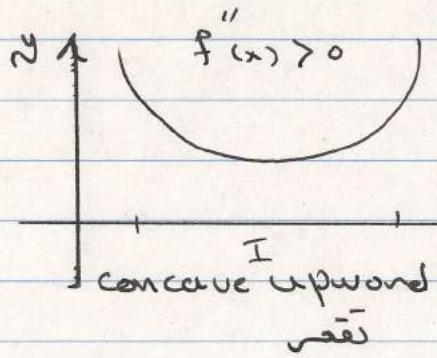 y f''(x) > 0
I
concave upword
تقعر